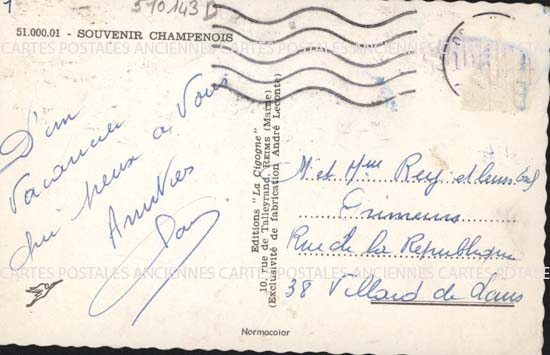 510143
51.000.01 - SOUVENIR CHAMPENOIS
CARTES POSTALES ANCIENNES CARTES POSTALES ANCIENNES CARTES POSTALES ANCIENNES
D'un
Vacancier
heureux a Vous
Amitiés
Editions "La Cigogne"
10, rue de Talleyrand, REIMS (Marne)
(Exclusivité de fabrication André Leconte)
M. et Mme Rey
Rue de la Republique
38 Villard de Lans
CARTES POSTALES ANCIENNES CARTES POSTALES ANCIENNES CARTES POSTALES ANCIENNES
Normacolor